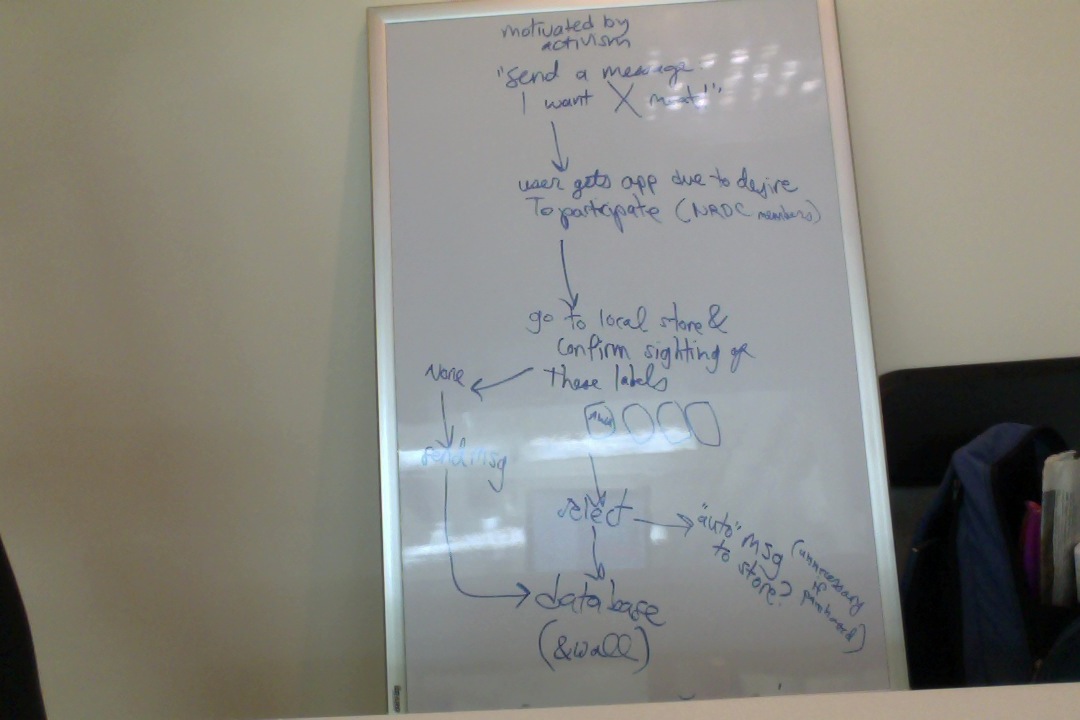 motivated by
activism
"Send a message.
I want X meat!"
user gets app due to desire
To participate (NRDC members)
go to local store &
Confirm sighting of
These labels
None
send msg
select
"auto" msg
to store?
(unnecessary
if
purchased)
database
(& wall)